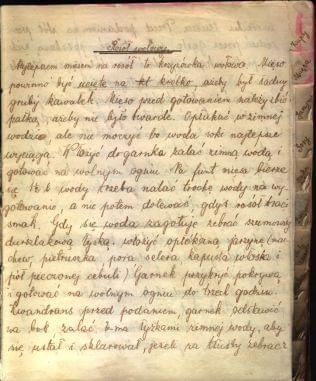 Rosół wołowy
Najlepszem mięsem na rosół to krzyżówka wołowa. Mięso
powinno być ucięte na kł krótko, ażeby był ładny
gruby kawałek. Mięso przed gotowaniem należy zbić
pałką, ażeby nie było twarde. Opłukać w zimnej
wodzie, ale nie moczyć bo woda soki najlepsze
wyciąga. Włożyć do garnka zalać zimną wodą i
gotować na wolnym ogniu. Na funt mięsa bierze
się wody trzeba nalać trochę wody na wy-
gotowanie, a nie potem dolewać, gdyż rosół traci
smak. Gdy się woda zagotuje zebrać szumowiny
durszlakową łyżką, włożyć opłókaną jarzynę (mar-
chew, pietruszka pora selera kapusta włoska i
pół pieczonej cebuli) Garnek przykryć pokrywą
i gotować na wolnym ogniu do trzech godzin.
Kwandrans przed podaniem, garnek odstawić
na bok zalać 2-ma łyżkami zimnej wody, aby
się ustał i sklarował, jeżeli za tłusty zebrać